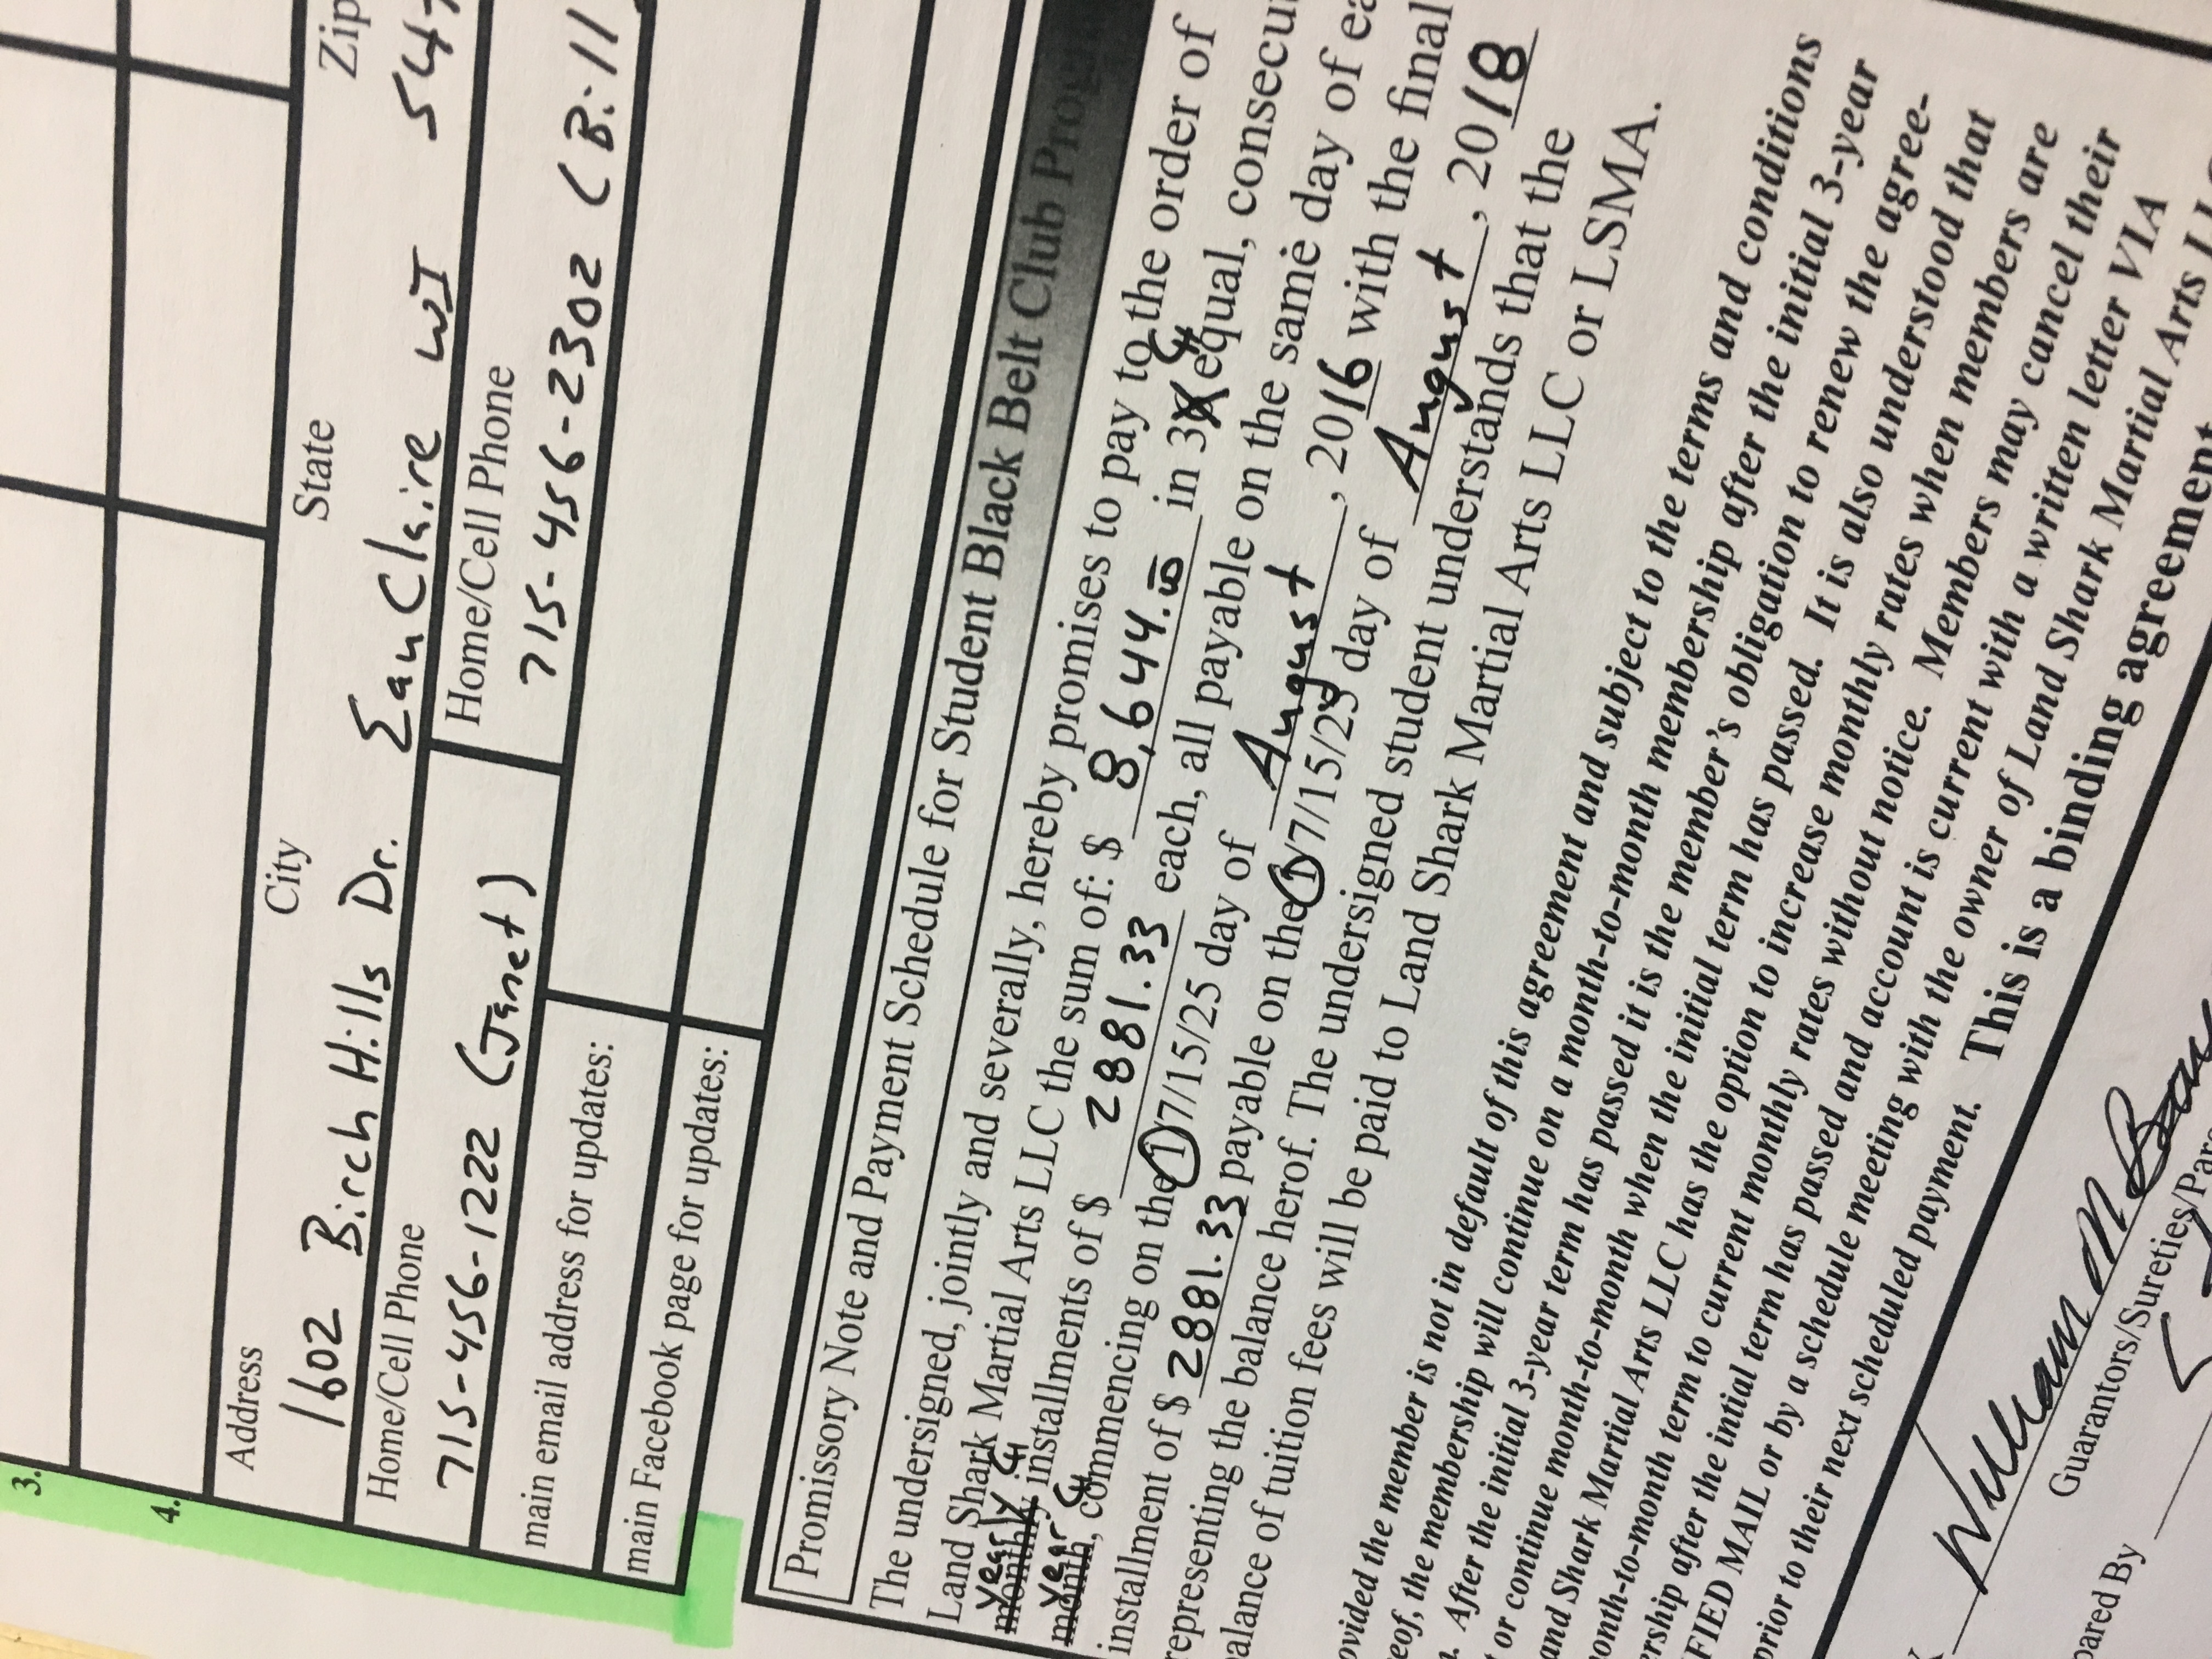 3.
4.
Address City State Zip
1602 Birch Hills Dr. Eau Claire WI 547
Home/Cell Phone Home/Cell Phone
715-456-1222 (Janet) 715-456-2302 (Bill
main email address for updates:
main Facebook page for updates:
Promissory Note and Payment Schedule for Student Black Belt Club Progr
The undersigned, jointly and severally, hereby promises to pay to the order of
Land Shark Martial Arts LLC the sum of: $ 8,644.00 in 36 equal, consecut
yearly CH CH
monthly installments of $ 2881.33 each, all payable on the same day of ea
year CH
month, commencing on the 1/7/15/25 day of August, 2016 with the final
installment of $ 2881.33 payable on the 1/7/15/25 day of August, 2018
representing the balance herof. The undersigned student understands that the
balance of tuition fees will be paid to Land Shark Martial Arts LLC or LSMA.
ovided the member is not in default of this agreement and subject to the terms and conditions
eof, the membership will continue on a month-to-month membership after the initial 3-year
. After the initial 3-year term has passed it is the member's obligation to renew the agree-
t or continue month-to-month when the initial term has passed. It is also understood that
and Shark Martial Arts LLC has the option to increase monthly rates when members are
onth-to-month term to current monthly rates without notice. Members may cancel their
ership after the intial term has passed and account is current with a written letter VIA
FIED MAIL or by a schedule meeting with the owner of Land Shark Martial Arts LLC
prior to their next scheduled payment. This is a binding agreement
William M
Guarantors/Sureties/Pare
pared By